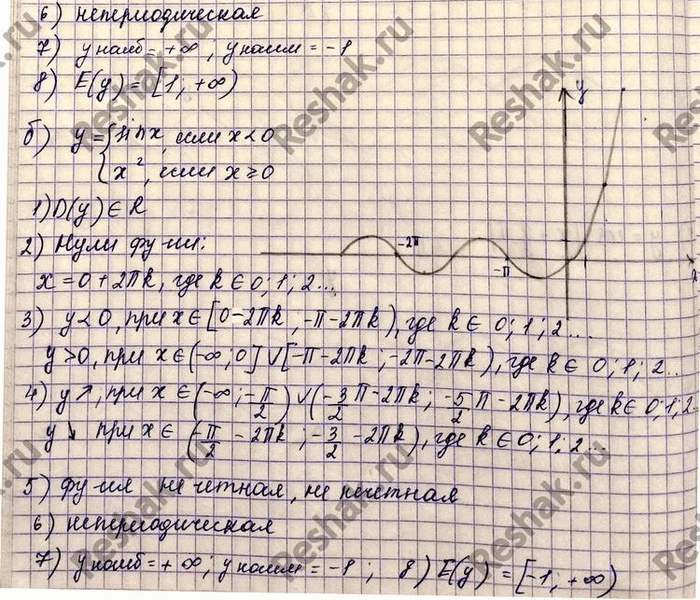 6) непериодическая
7) y наиб = +∞ ; y наим = -1
8) E(y) = [1; +∞)
y
б) y = { sin x, если x < 0
x², если x ≥ 0
1) D(y) ∈ R
2) Нули фу-ии:
-2π
-π
x
x = 0 + 2πk, где k ∈ 0; 1; 2...
3) y < 0, при x ∈ [0 - 2πk; -π - 2πk), где k ∈ 0; 1; 2....
y > 0, при x ∈ (-∞; 0] ∪ [-π - 2πk; -2π - 2πk), где k ∈ 0; 1; 2...
4) y ↗, при x ∈ (-∞; -π/2) ∪ (-3/2 π - 2πk; -5/2 π - 2πk), где k ∈ 0; 1; 2
y ↘ при x ∈ (π/2 - 2πk; -3/2 - 2πk), где k ∈ 0; 1; 2...
5) фу-ия не четная, не нечетная
6) непериодическая
7) y наиб = +∞; y наим = -1; 8) E(y) = [-1; +∞)
Reshak.ru